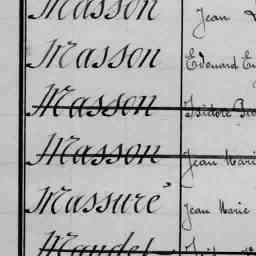 Masson Jean
Masson Edouard
Masson Isidore
Masson Jean Marie
Massuré Jean Marie
Maudet